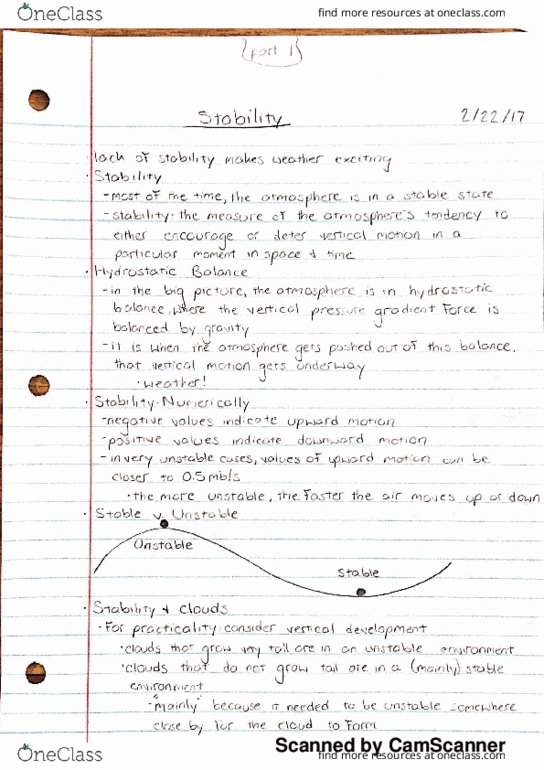 OneClass
find more resources at oneclass.com
(part 1)
Stability
2/22/17
· lack of stability makes weather exciting
· Stability
- most of the time, the atmosphere is in a stable state
- stability: the measure of the atmosphere's tendency to
either encourage or deter vertical motion in a
particular moment in space + time
· Hydrostatic Balance
- in the big picture, the atmosphere is in hydrostatic
balance, where the vertical pressure gradient force is
balanced by gravity
- it is when the atmosphere gets pushed out of this balance,
that vertical motion gets underway
· weather!
· Stability - Numerically
- negative values indicate upward motion
- positive values indicate downward motion
- in very unstable cases, values of upward motion can be
closer to 0.5mb/s
· the more unstable, the faster the air moves up or down
· Stable v. Unstable
Unstable
Stable
· Stability + clouds
- For practicality: consider vertical development
· clouds that grow very tall are in an unstable environment
· clouds that do not grow tall are in a (mainly) stable
environment
- "mainly" because it needed to be unstable somewhere
close by for the cloud to form
Scanned by CamScanner
OneClass
find more resources at oneclass.com